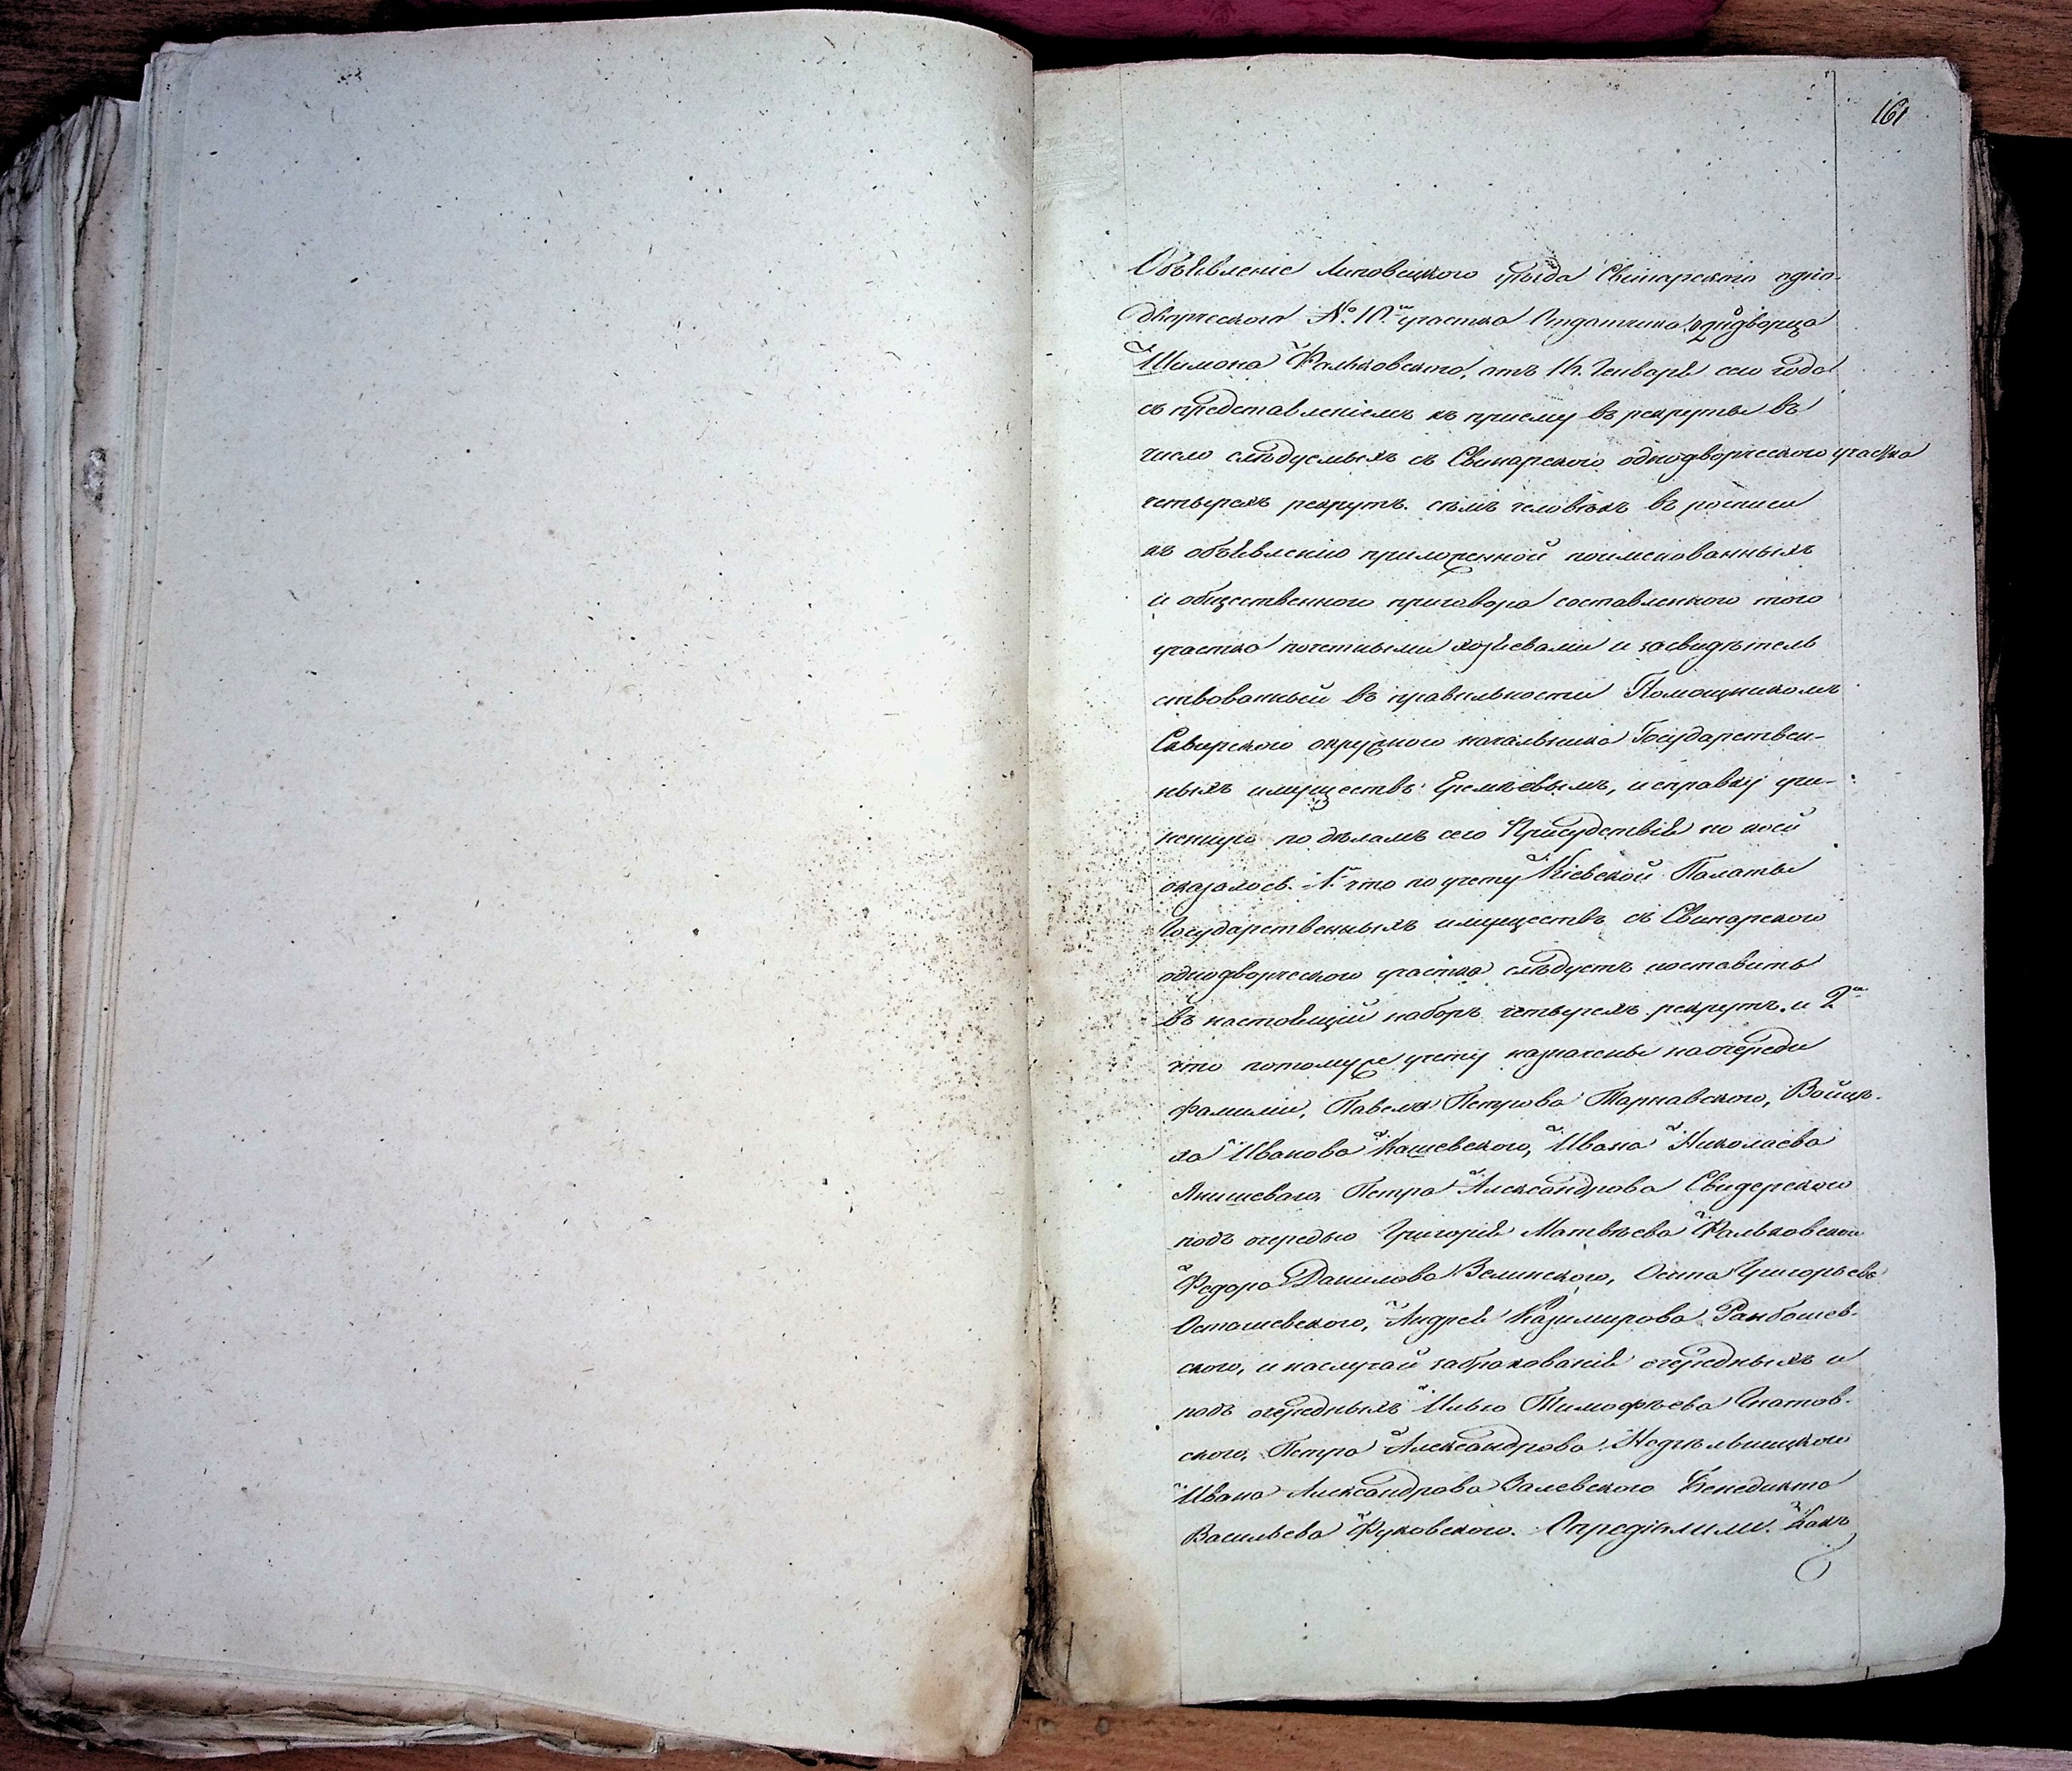 161
Объявленіе Липовецкого уѣзда Свинарского одно-
дворческого № 10.го участка Отдатчика однодворца
Шимона Фальковского, отъ 16. Генваря сего года
съ представленіемъ къ приему въ рекруты въ
число слѣдуемыхъ съ Свинарского однодворческого участка
четырехъ рекрутъ. семъ человѣкъ въ росписи
къ объявленію приложенной поименованныхъ
и общественного приговора составленного того
участка почетными хозяевами и засвидѣтель
ствованный въ правильности Помощникомъ
Сквирского окружного начальника Государствен-
ныхъ имуществъ Еремѣевымъ, и справку учи-
ненную по дѣламъ сего Присудствія по коей
оказалось. 1.е что по учету Кіевской Палаты
Государственныхъ имуществъ съ Свинарского
однодворческого участка слѣдуетъ поставить
въ настоящій наборъ четырехъ рекрутъ. и 2.е
что потомуже учету назначены наочереди
фамиліи, Павела Петрова Тарнавского, Войцѣ-
ха Иванова Кашевского, Ивана Николаева
Янишеваго, Петра Александрова Свидерского
подъ очередью Григорія Матвѣева Фальковского
Федора Данилова Зелинского, Осипа Григорьева
Осташевского, Андрея Казимирова
ского, и наслучай забракованія очередныхъ и
подъ очередныхъ Илью Тимофѣева Гнатов-
ского, Петра Александрова Недѣльницкого
Ивана Александрова Залевского Бенедикта
Васильева Фуковского. Опредѣлили. Какъ